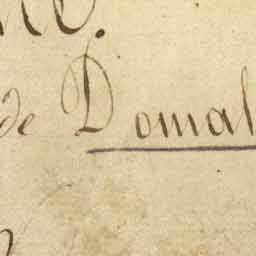 de Domal